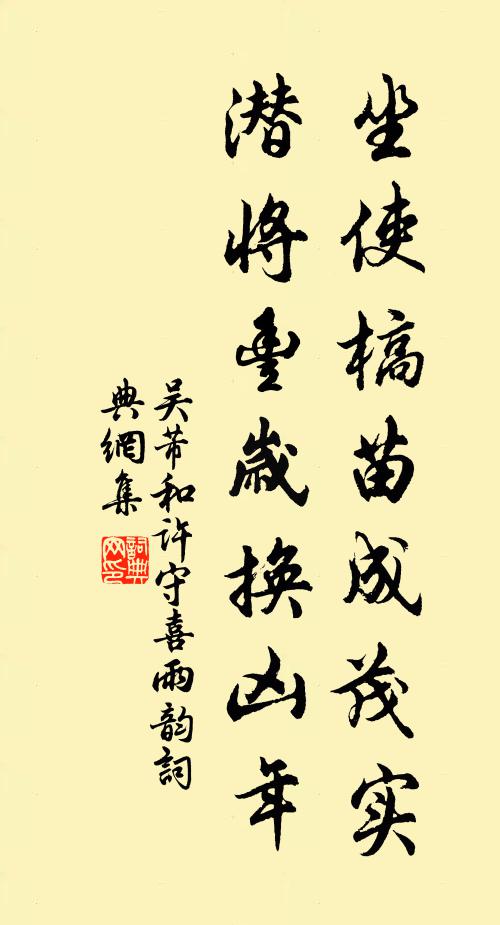 坐使槁苗成茂实
潜将豊歳换凶年
吴芾和许守喜雨韵詞
典網集
詞典
网印